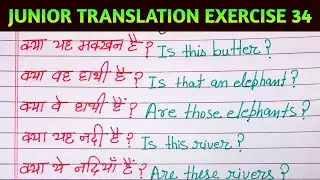 JUNIOR TRANSLATION EXERCISE 34
क्या यह मक्खन है? Is this butter?
क्या वह हाथी है? Is that an elephant?
क्या वे हाथी हैं? Are those elephants?
क्या यह नदी है? Is this river?
क्या ये नदियाँ हैं? Are these rivers?